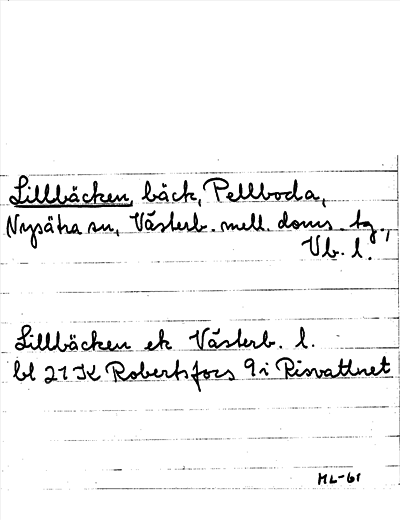 Lillbäcken, bäck, Pellboda,
Nysätra sn, Västerb. mell. doms. tg.,
Vb. l.
Lillbäcken ek Västerb. l.
bl 21 K Robertsfors 9 i Risvattnet
ML-61